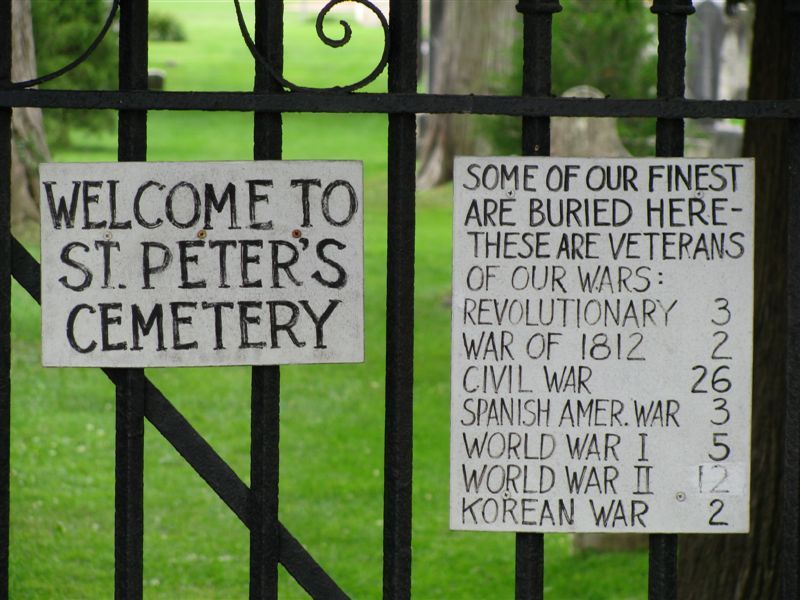 WELCOME TO
ST. PETER'S
CEMETERY
SOME OF OUR FINEST
ARE BURIED HERE-
THESE ARE VETERANS
OF OUR WARS:
REVOLUTIONARY 3
WAR OF 1812 2
CIVIL WAR 26
SPANISH AMER. WAR 3
WORLD WAR I 5
WORLD WAR II 12
KOREAN WAR 2